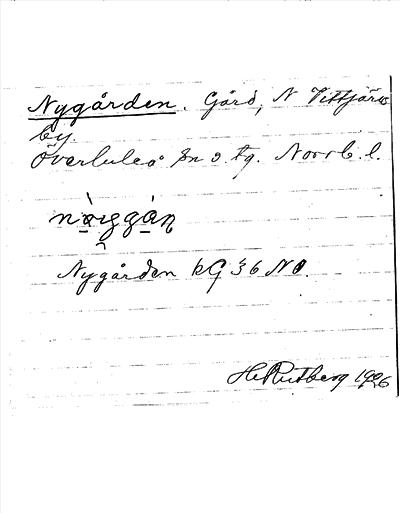 Nygården. Gård, N Vittjärvs
by.
Överluleå sn o. tg. Norrb. l.
Nygården kG 36 NO.
H. Rutberg 1926